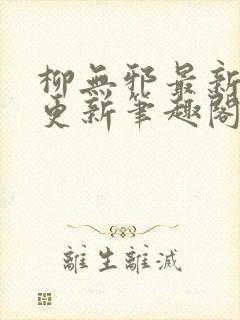 柳無邪最新
更新筆趣閣
離生離滅